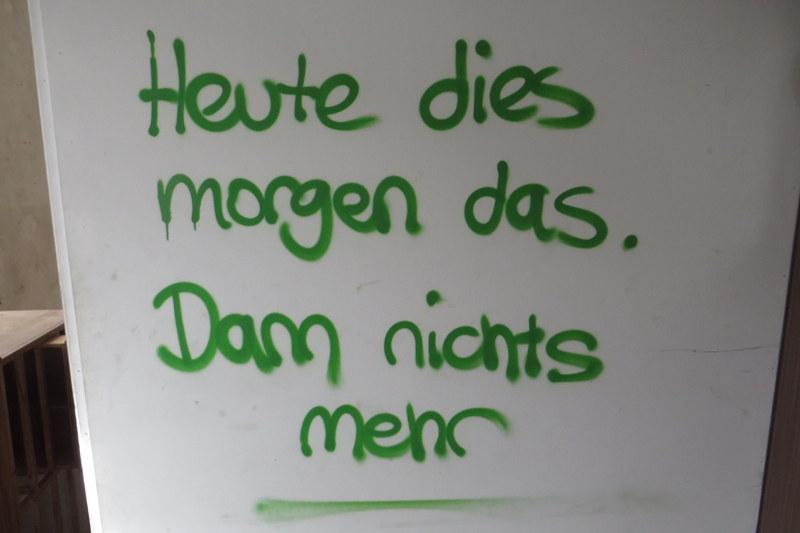 Heute dies
morgen das.
Dann nichts
mehr